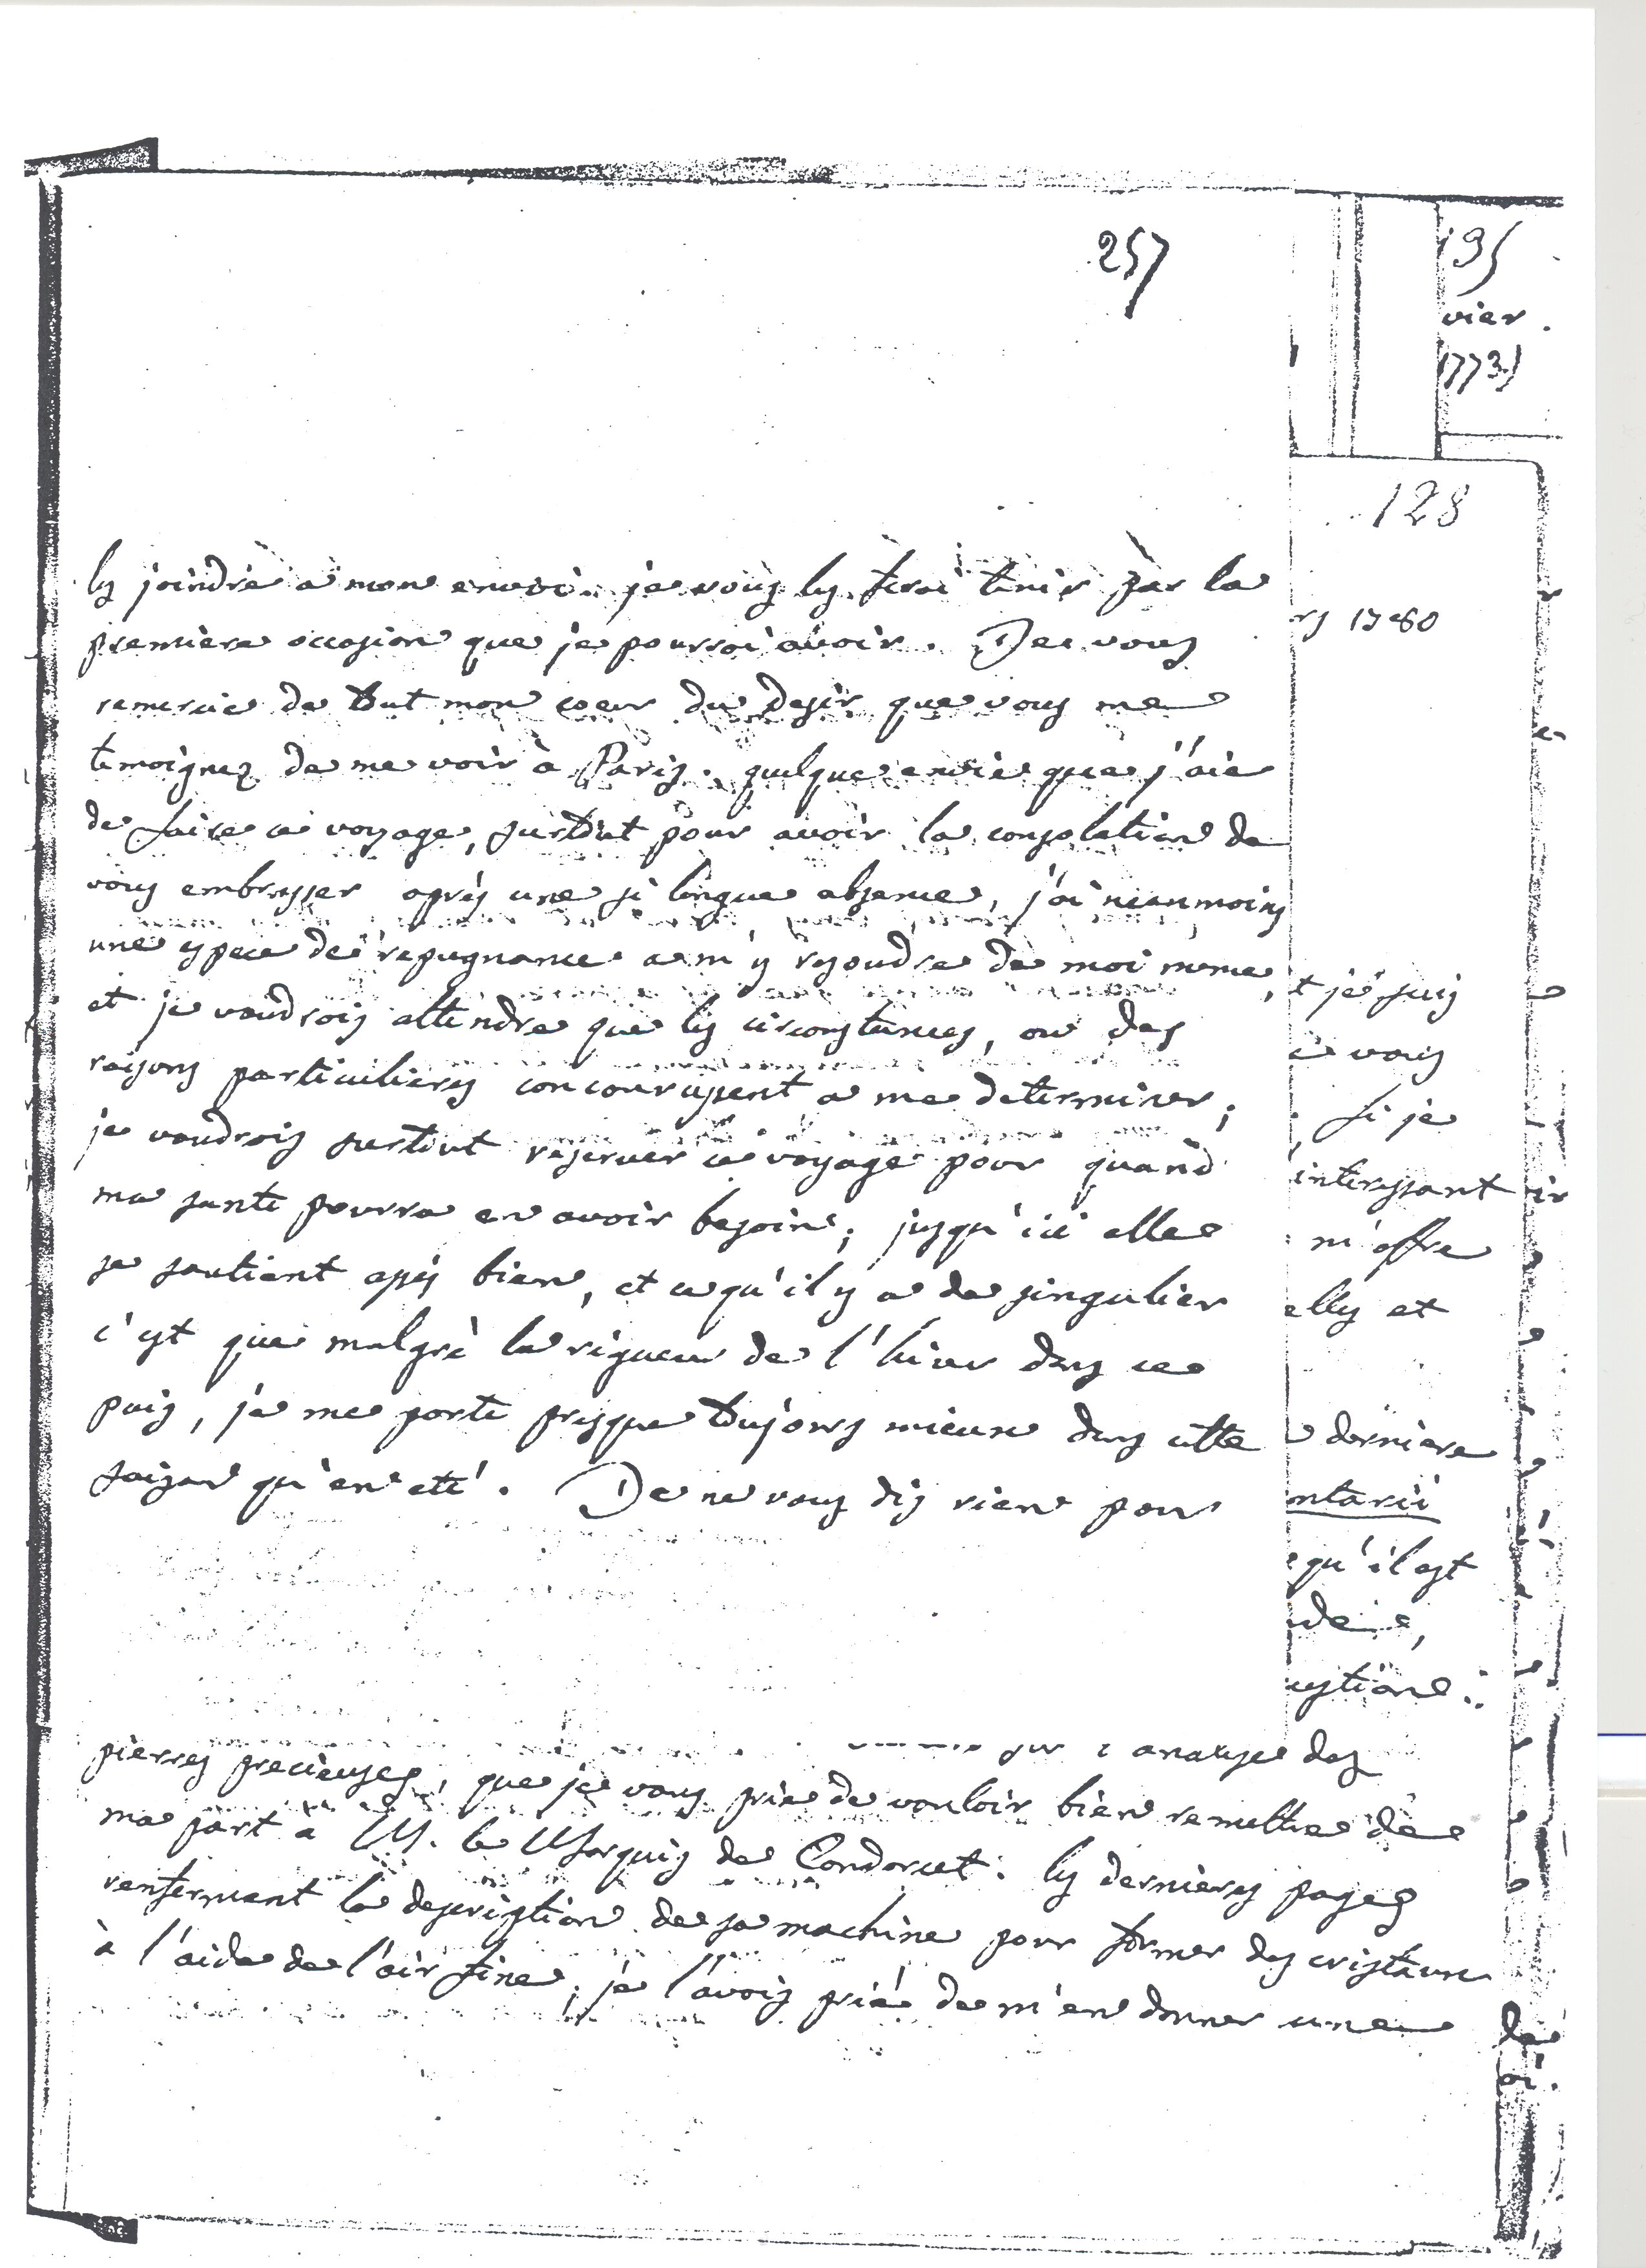 257
195
vier
1773)
128
rs 1780
les joindre a mon envoi. je vous les ferai tenir par la
premiere occasion que je pourrai avoir. Je vous
remercie de tout mon coeur du desir que vous me
temoignez de me voir à Paris. quelque envie que j'aie
de faire ce voyage, surtout pour avoir la consolation de
vous embrasser après une si longue absence, j'ai neanmoins
une espece de repugnance a m'y resoudre de moi meme,
et je voudrois attendre que les circonstances, ou des
raisons particulieres concourussent a me determiner;
je voudrois surtout reserver ce voyage pour quand
ma santé pourra en avoir besoin; jusqu'ici elle
se soutient assés bien, et ce qu'il y a de singulier
c'est que malgré la rigueur de l'hiver dans ce
païs, je me porte presque toujours mieux dans cette
saison qu'en eté. Je ne vous dis rien pour
t je suis
e vous
si je
interessant
m'offre
elles et
derniere
ntarii
qu'il est
estion
sur l'analyse des
pierres precieuses, que je vous prie de vouloir bien remettre de
ma part à M. le Marquis de Condorcet: les dernieres pages
renferment la description de sa machine pour former des cristaux
à l'aide de l'air fixe; je l'avois prié de m'en donner une